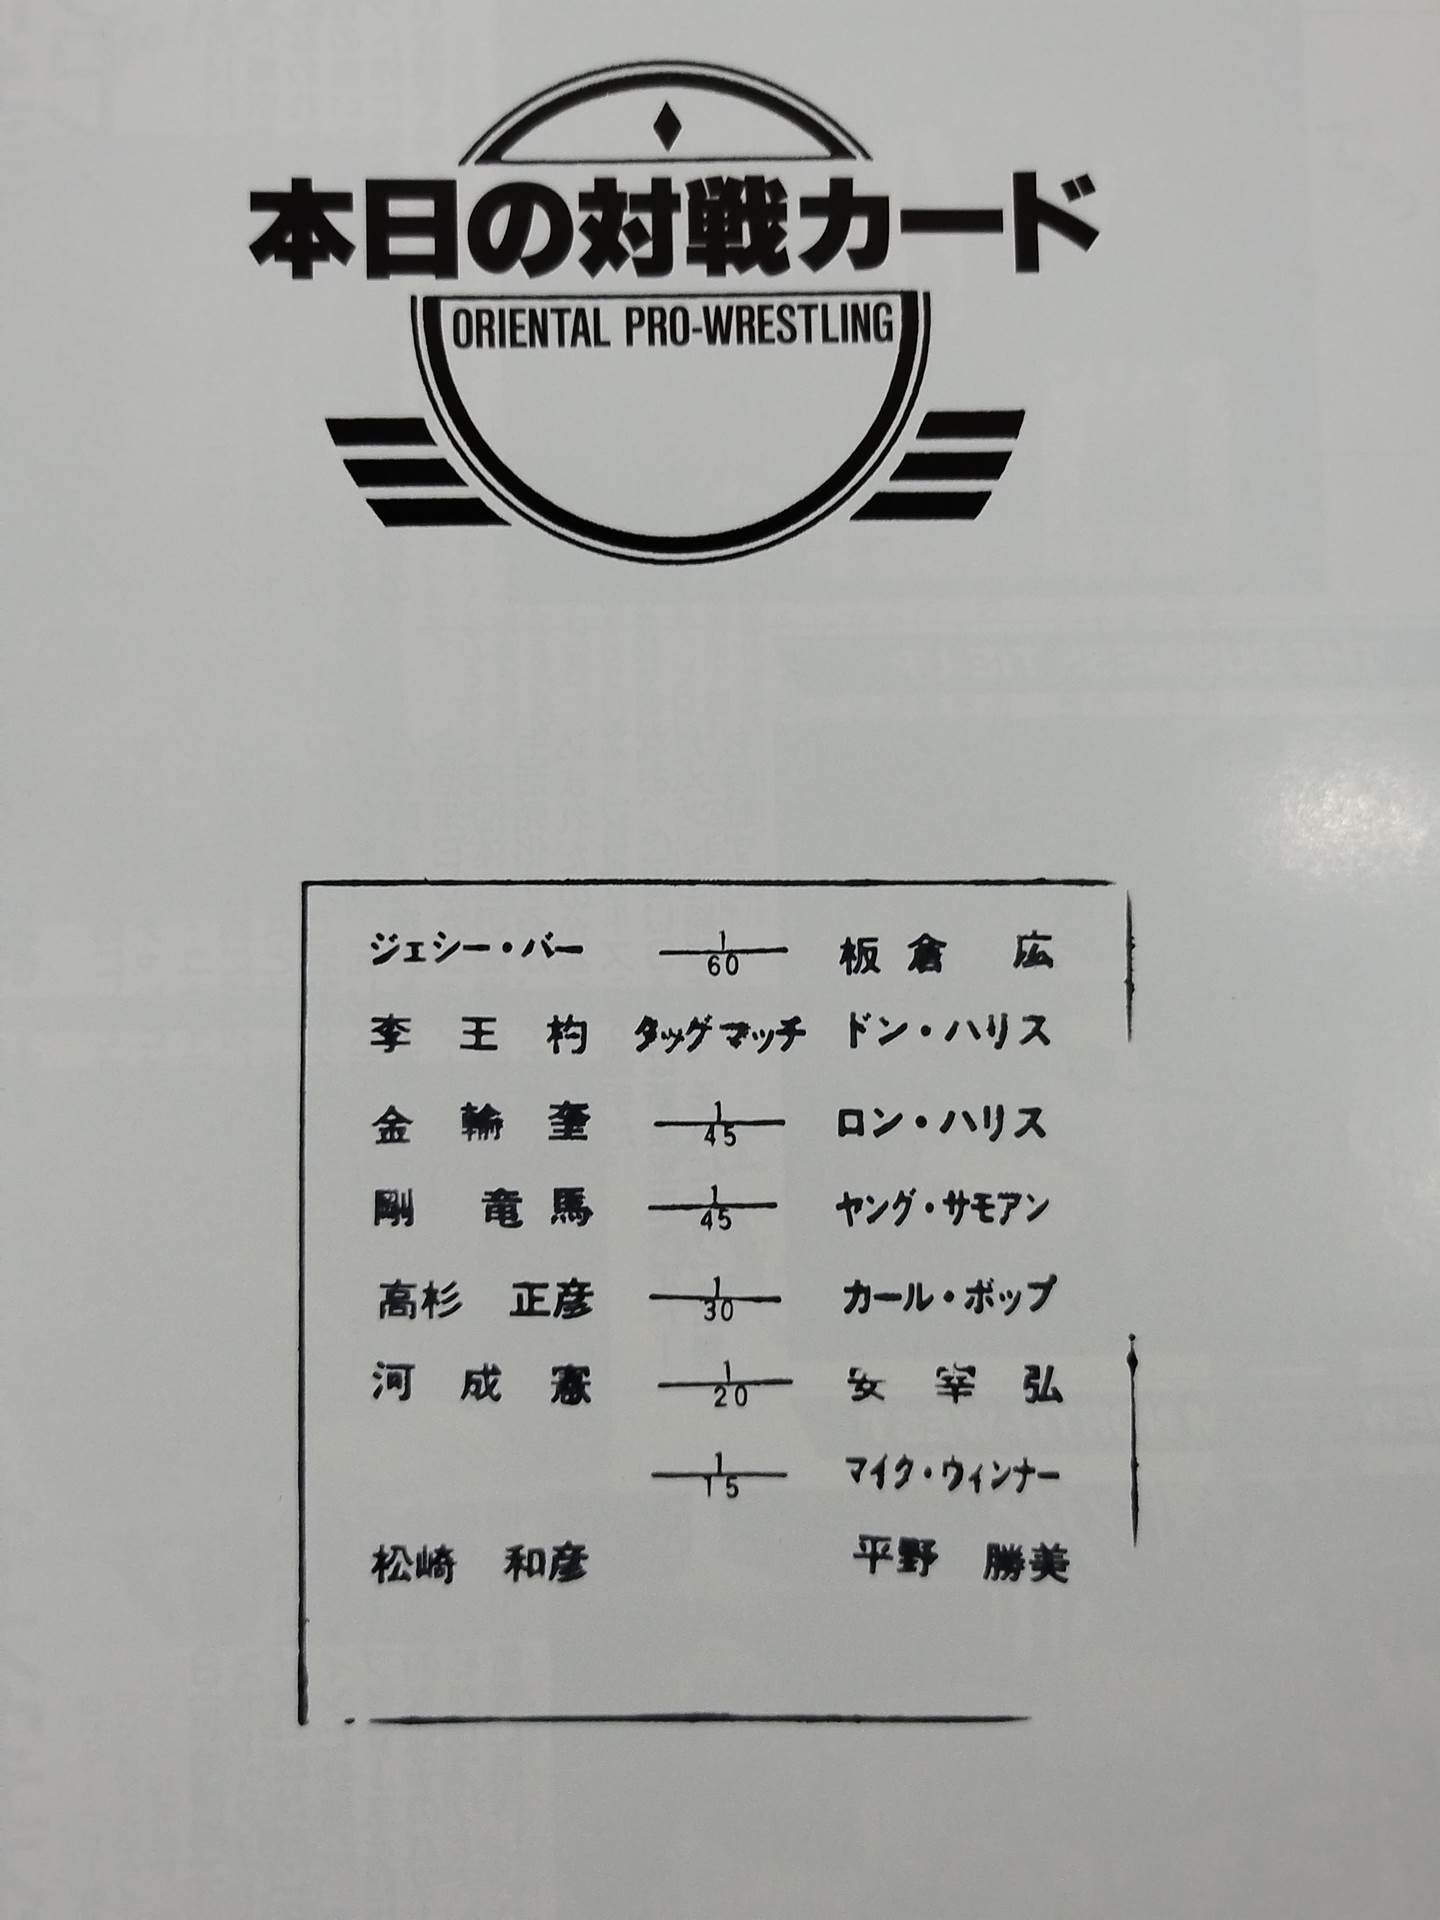 本日の対戦カード
ORIENTAL PRO-WRESTLING
ジェシー・バー 1/60 板倉 広
李 王杓 タッグマッチ ドン・ハリス
金 輸奎 1/45 ロン・ハリス
剛 竜馬 1/45 ヤング・サモアン
高杉 正彦 1/30 カール・ボップ
河 成憲 1/20 安 宰弘
1/15 マイク・ウィンナー
松崎 和彦 平野 勝美